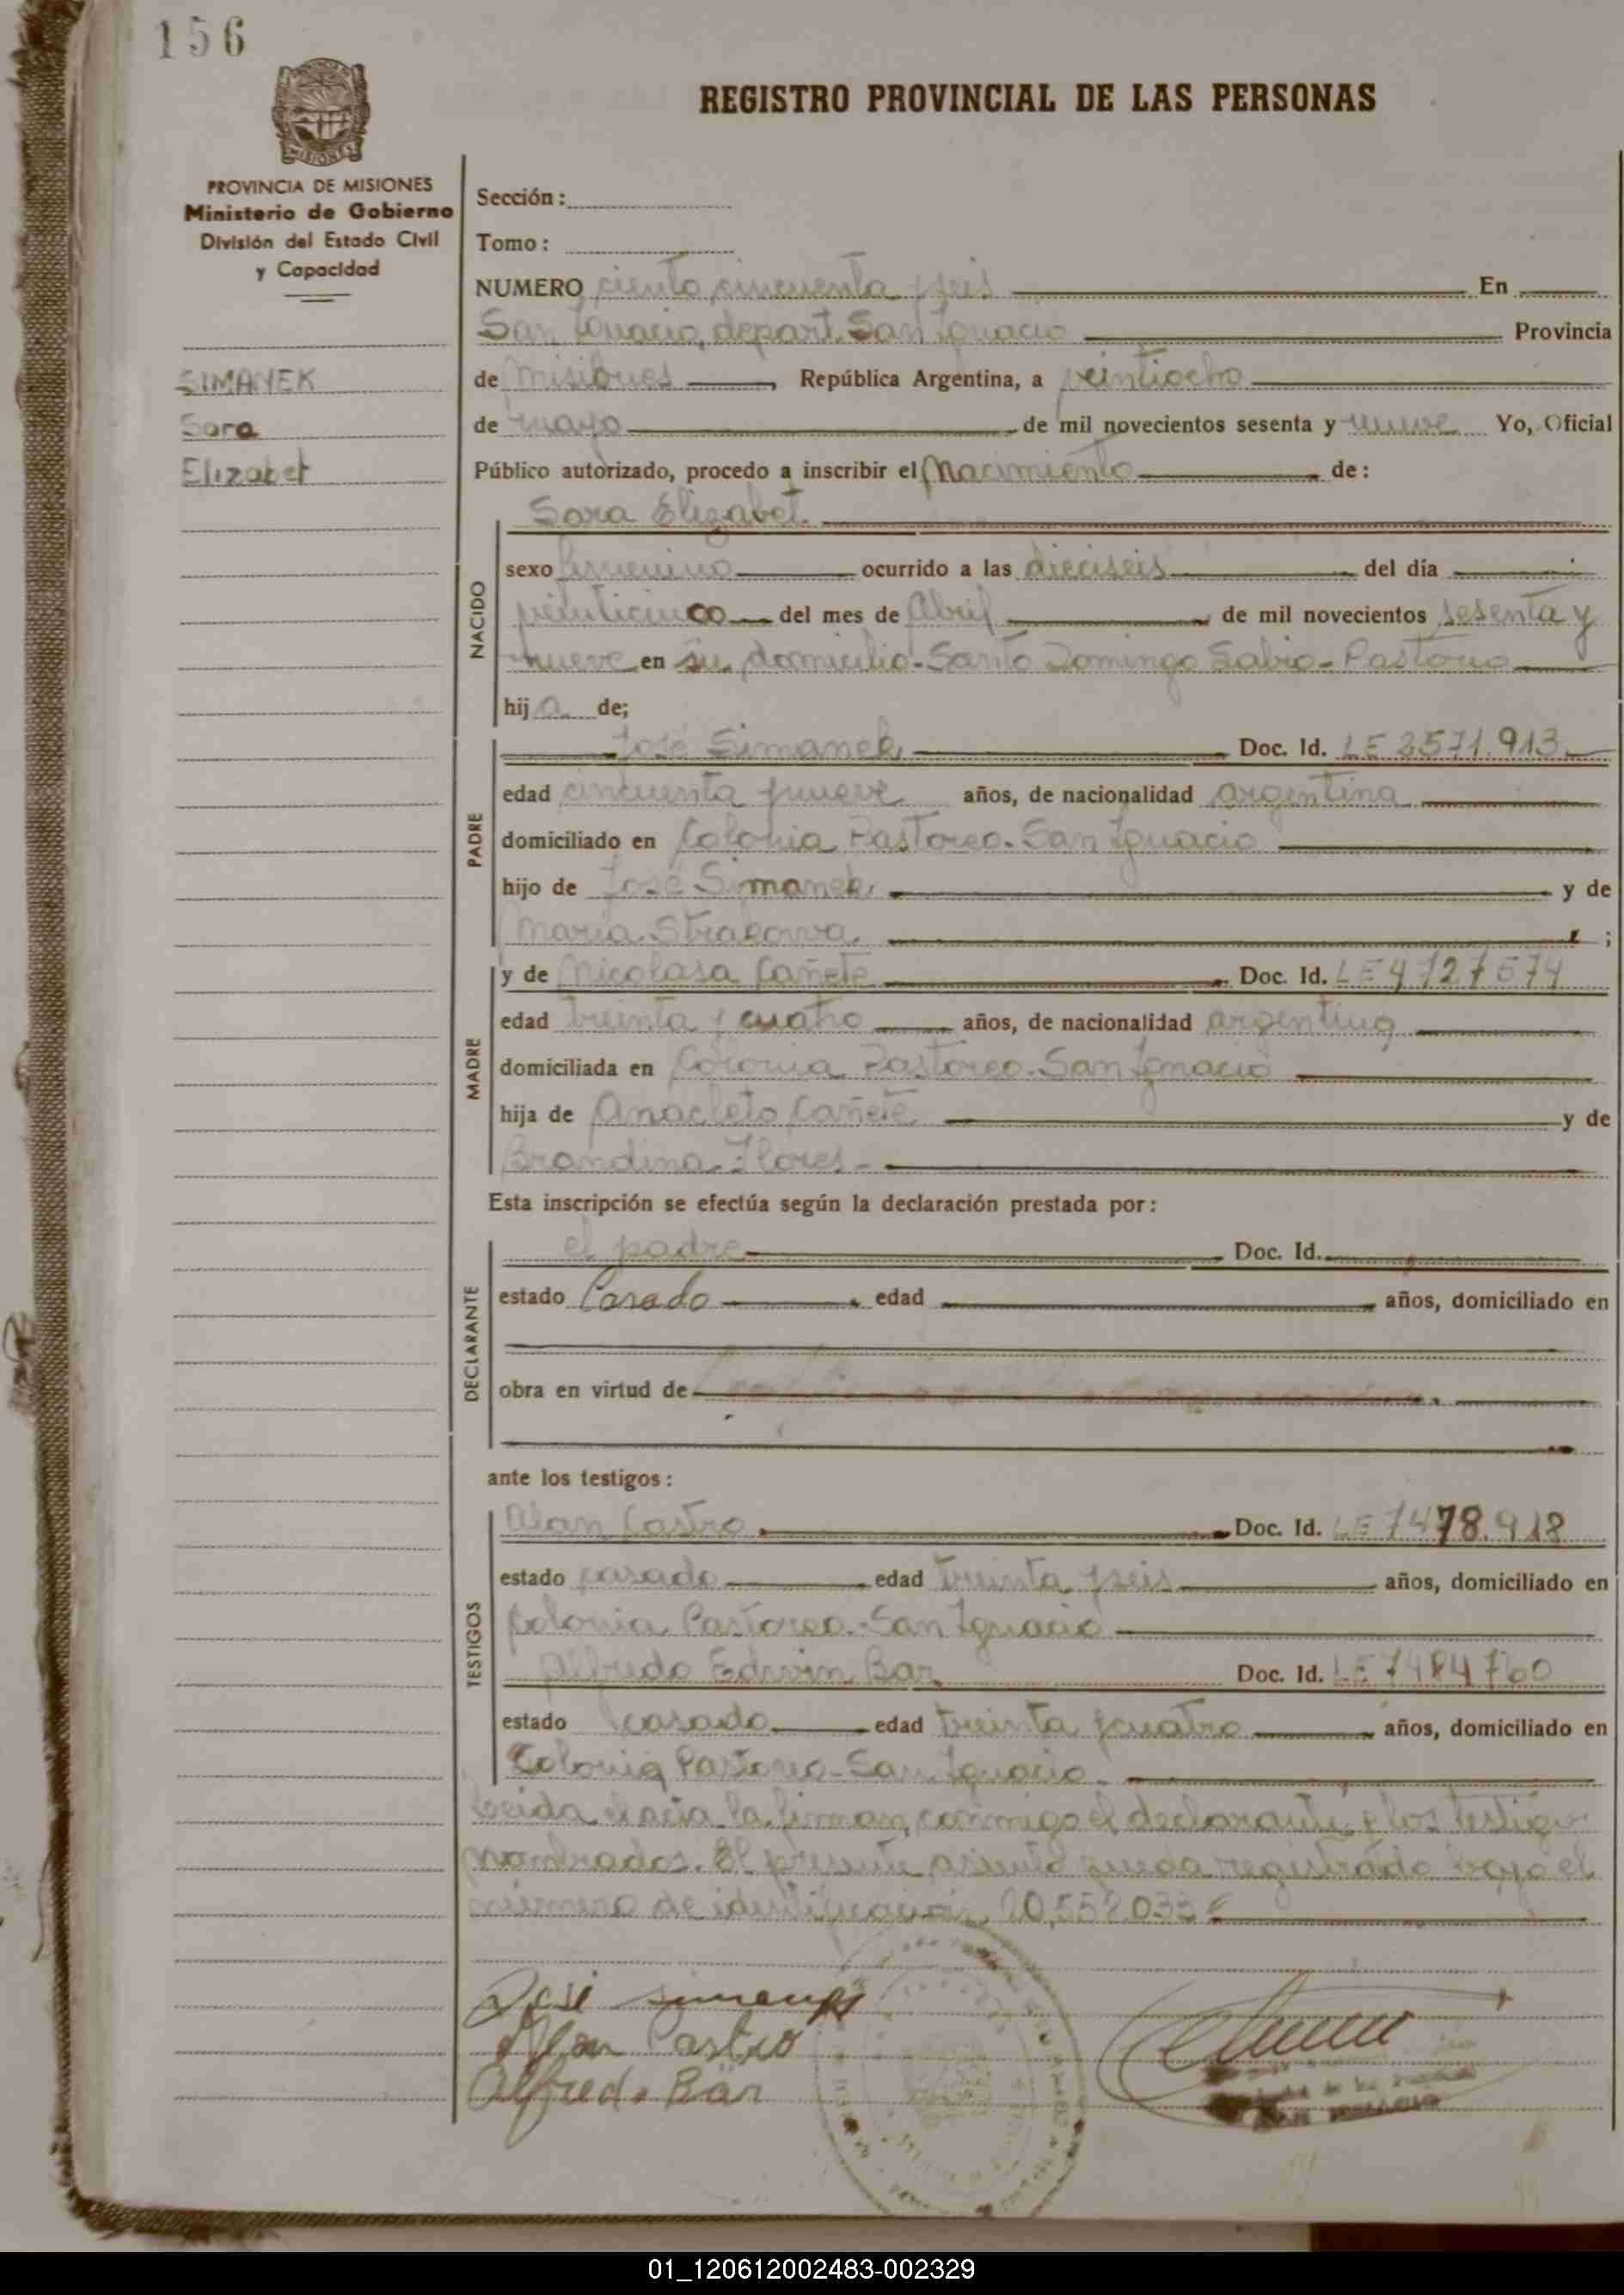 156
REGISTRO PROVINCIAL DE LAS PERSONAS
MISIONES
PROVINCIA DE MISIONES
Ministerio de Gobierno
División del Estado Civil
y Capacidad
SIMANEK
Sara
Elizabet
Sección:
Tomo:
NUMERO ciento cincuenta y seis En
San Ignacio, depart. San Ignacio Provincia
de Misiones, República Argentina, a veintiocho
de mayo de mil novecientos sesenta y nueve Yo, Oficial
Público autorizado, procedo a inscribir el Nacimiento de:
Sara Elizabet
NACIDO
sexo femenino ocurrido a las dieciseis del día
veinticinco del mes de Abril de mil novecientos sesenta y
nueve en su domicilio-Santo Domingo Sabio-Pastoreo
hija de;
PADRE
José Simanek Doc. Id. LE 2571.913
edad cincuenta y nueve años, de nacionalidad argentina
domiciliado en Colonia Pastoreo-San Ignacio
hijo de José Simanek y de
María Strakowa ;
MADRE
y de Nicolasa Cañete Doc. Id. LE 4727574
edad treinta y cuatro años, de nacionalidad argentina
domiciliada en Colonia Pastoreo-San Ignacio
hija de Anacleto Cañete y de
Brandina Flores-
Esta inscripción se efectúa según la declaración prestada por:
DECLARANTE
el padre Doc. Id.
estado Casado edad años, domiciliado en
obra en virtud de
ante los testigos:
TESTIGOS
Alan Castro Doc. Id. LE 7478.918
estado casado edad treinta y seis años, domiciliado en
Colonia Pastoreo-San Ignacio
Alfredo Edwin Bar Doc. Id. LE 7484760
estado casado edad treinta y cuatro años, domiciliado en
Colonia Pastoreo-San Ignacio-
Leida el acta la firman conmigo el declarante y los testigos
nombrados. El presente asiento queda registrado bajo el
número de identificación 20,552.033
José Simanek
Alan Castro
Alfredo Bär
01_120612002483-002329